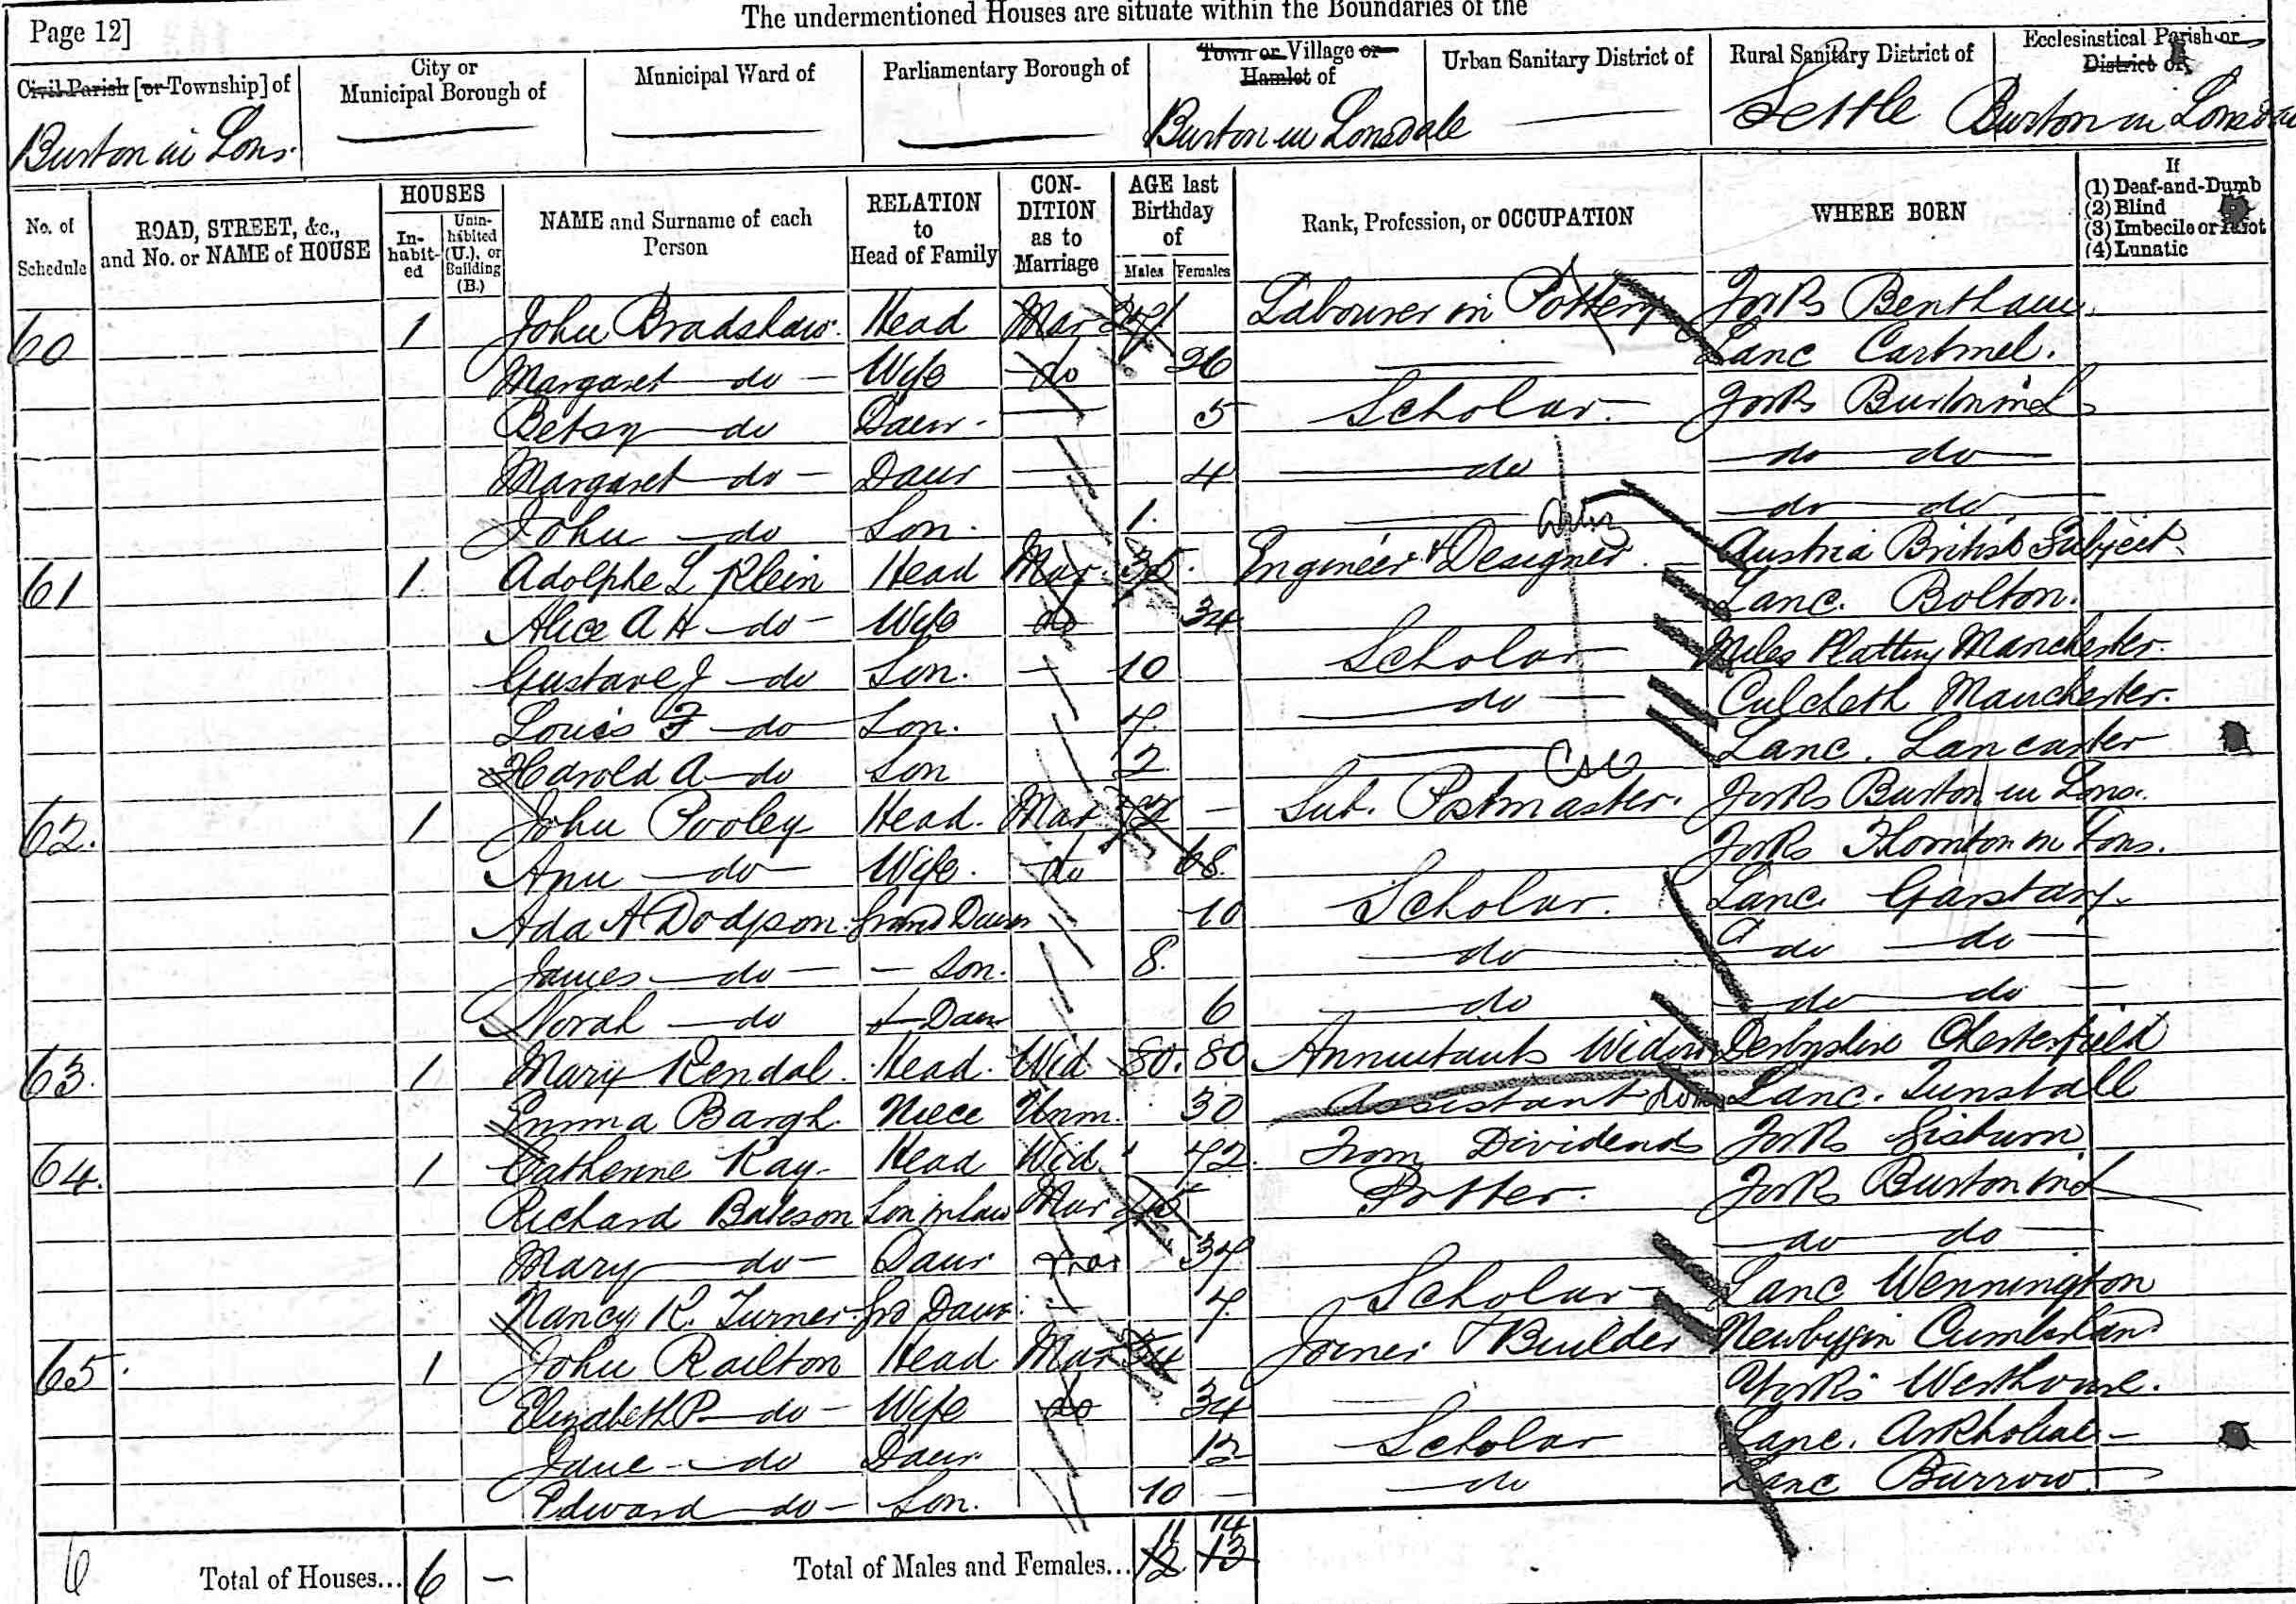 The undermentioned Houses are situate within the Boundaries of the
Page 12]
Civil Parish [or Township] of
City or Municipal Borough of
Municipal Ward of
Parliamentary Borough of
Town or Village or Hamlet of
Urban Sanitary District of
Rural Sanitary District of
Ecclesiastical Parish or District of
Burton in Lons. Burton in Lonsdale Settle Burton in Lonsdale
No. of Schedule
ROAD, STREET, &c., and No. or NAME of HOUSE
HOUSES
In-habit-ed
Unin-habited (U.), or Building (B.)
NAME and Surname of each Person
RELATION to Head of Family
CON-DITION as to Marriage
AGE last Birthday of
Males Females
Rank, Profession, or OCCUPATION
WHERE BORN
If
(1) Deaf-and-Dumb
(2) Blind
(3) Imbecile or Idiot
(4) Lunatic
60 1 John Bradshaw. Head Mar 27 Labourer in Pottery Yorks Bentham.
Margaret do Wife do 26 Lanc Cartmel.
Betsy do Daur. 5 Scholar. Yorks Burton in L
Margaret do Daur 4 do do do
John do Son. 1. do do
61 1 Adolphe L Klein Head Mar 35. Engineer & Designer. Austria British Subject.
Alice A H do Wife do 34 Lanc. Bolton.
Gustave J do Son. 10 Scholar Miles Platting Manchester.
Louis F do Son. 7. do Culcheth Manchester.
Harold A do Son 2 Lanc. Lancaster
62. 1 John Pooley Head. Mar 72 Sub. Postmaster. Yorks Burton in Lons.
Ann do Wife. do 68. Yorks Thornton in Lons.
Ada A Dodgson Grand Daur 10 Scholar. Lanc. Garstang.
James do Son. 8. do do do
Norah do Daur 6 do do do
63. 1 Mary Kendal. Head. Wid 80. 80 Annuitants Widow Derbyshire Chesterfield
Emma Bargh. Niece Unm. 30 Assistant Lanc. Tunstall
64. 1 Catherine Kay. Head Wid. 72. From Dividends Yorks Gisburn
Richard Bateson Son in law Mar 45 Potter. Yorks Burton in L
Mary do Daur Mar 37 do do
Nancy K. Turner Gr Daur. 7. Scholar Lanc Wennington
65. 1 John Railton Head Mar 34 Joiner & Builder Newbiggin Cumberland
Elizabeth P do Wife do 34 Yorks Westhouse.
Jane do Daur. 12 Scholar Lanc. Arkholme
Edward do Son. 10 do Lanc Burrow
11 14
6 Total of Houses... 6 Total of Males and Females... 12 13